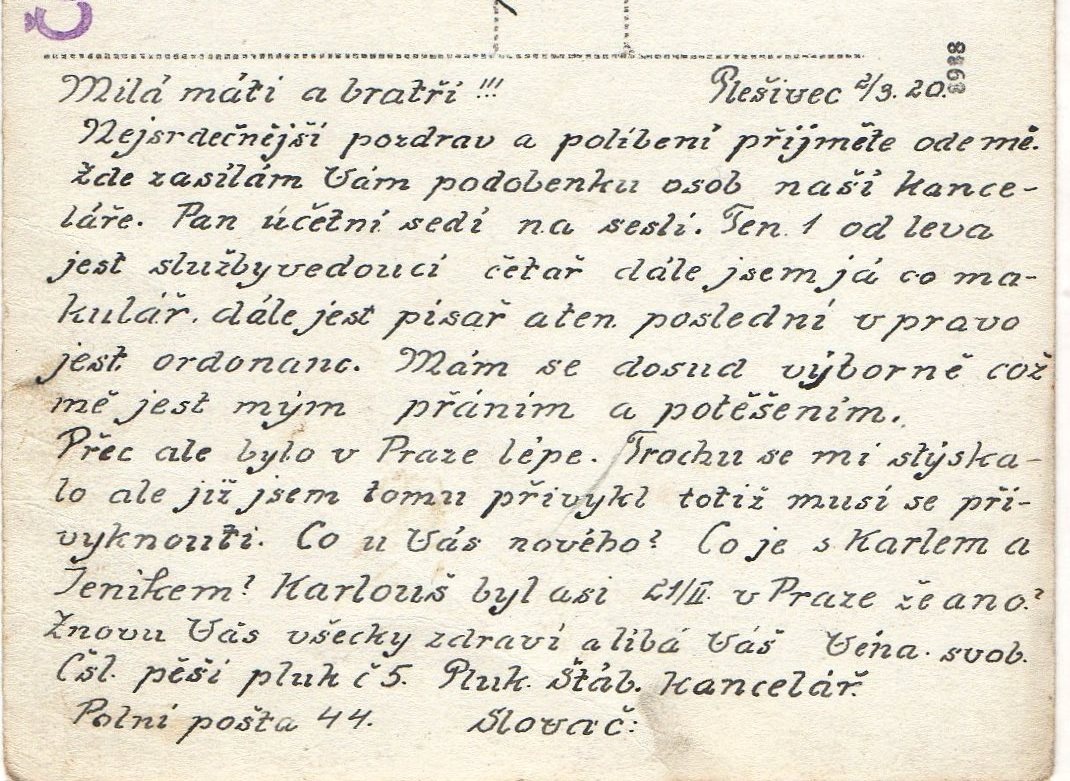 8988
Milá máti a bratři!!! Plešivec 2/3. 20.
Nejsrdečnější pozdrav a políbení přijměte odemě.
Zde zasílám Vám podobenku osob naší kance-
láře. Pan účetní sedí na sesli. Ten 1 od leva
jest službyvedoucí četař dále jsem já co ma-
kulář. dále jest písař aten poslední v pravo
jest ordonanc. Mám se dosud výborně což
mě jest mým přáním a potěšením.
Přec ale bylo v Praze lépe. Trochu se mi stýska-
lo ale již jsem tomu přivykl totiž musí se při-
vyknouti. Co u Vás nového? Co je s Karlem a
Ženikem? Karlouš byl asi 21/II. v Praze že ano?
Znovu Vás všecky zdraví a líbá Váš Véna. svob.
Čsl. pěší pluk č 5. Pluk. Štáb. kancelář.
Polní pošta 44. Slovač: